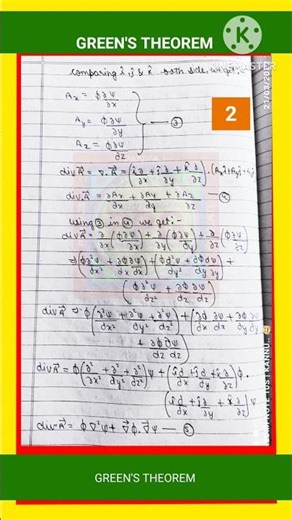 GREEN'S THEOREM
KINEMASTER
comparing î, ĵ & k̂ both side, we get,
21/03/2
Aₓ = ϕ∂ψ/∂x
2
A_y = ϕ∂ψ/∂y — ③
A_z = ϕ∂ψ/∂z
div A⃗ = ∇.A⃗ = (î∂/∂x + ĵ∂/∂y + k̂∂/∂z).(Aₓî + A_yĵ +
div A⃗ = ∂Aₓ/∂x + ∂A_y/∂y + ∂A_z/∂z — ④
using ③ in ④ we get:-
div A⃗ = ∂/∂x(ϕ∂ψ/∂x) + ∂/∂y(ϕ∂ψ/∂y) + ∂/∂z(ϕ∂ψ/∂z)
⇒ (ϕ∂²ψ/∂x² + ∂ϕ∂ψ/∂x ∂x) + (ϕ∂²ψ/∂y² + ∂ϕ∂ψ/∂y ∂y) +
(ϕ∂²ψ/∂z² + ∂ϕ ∂ψ/∂z ∂z)
div A⃗ ⇒ ϕ(∂²ψ/∂x² + ∂²ψ/∂y² + ∂²ψ/∂z²) + (∂ϕ ∂ψ/∂x ∂x + ∂ϕ ∂ψ/∂y ∂y
+ ∂ϕ ∂ψ/∂z ∂z)
div A⃗ = ϕ(∂²/∂x² + ∂²/∂y² + ∂²/∂z²)ψ + (î∂/∂x + ĵ∂/∂y + k̂∂/∂z)ϕ.
(î∂/∂x + ĵ∂/∂y + k̂∂/∂z)ψ
div A⃗ = ϕ∇²ψ + ∇⃗ϕ.∇⃗ψ — ⑤
GREEN'S THEOREM